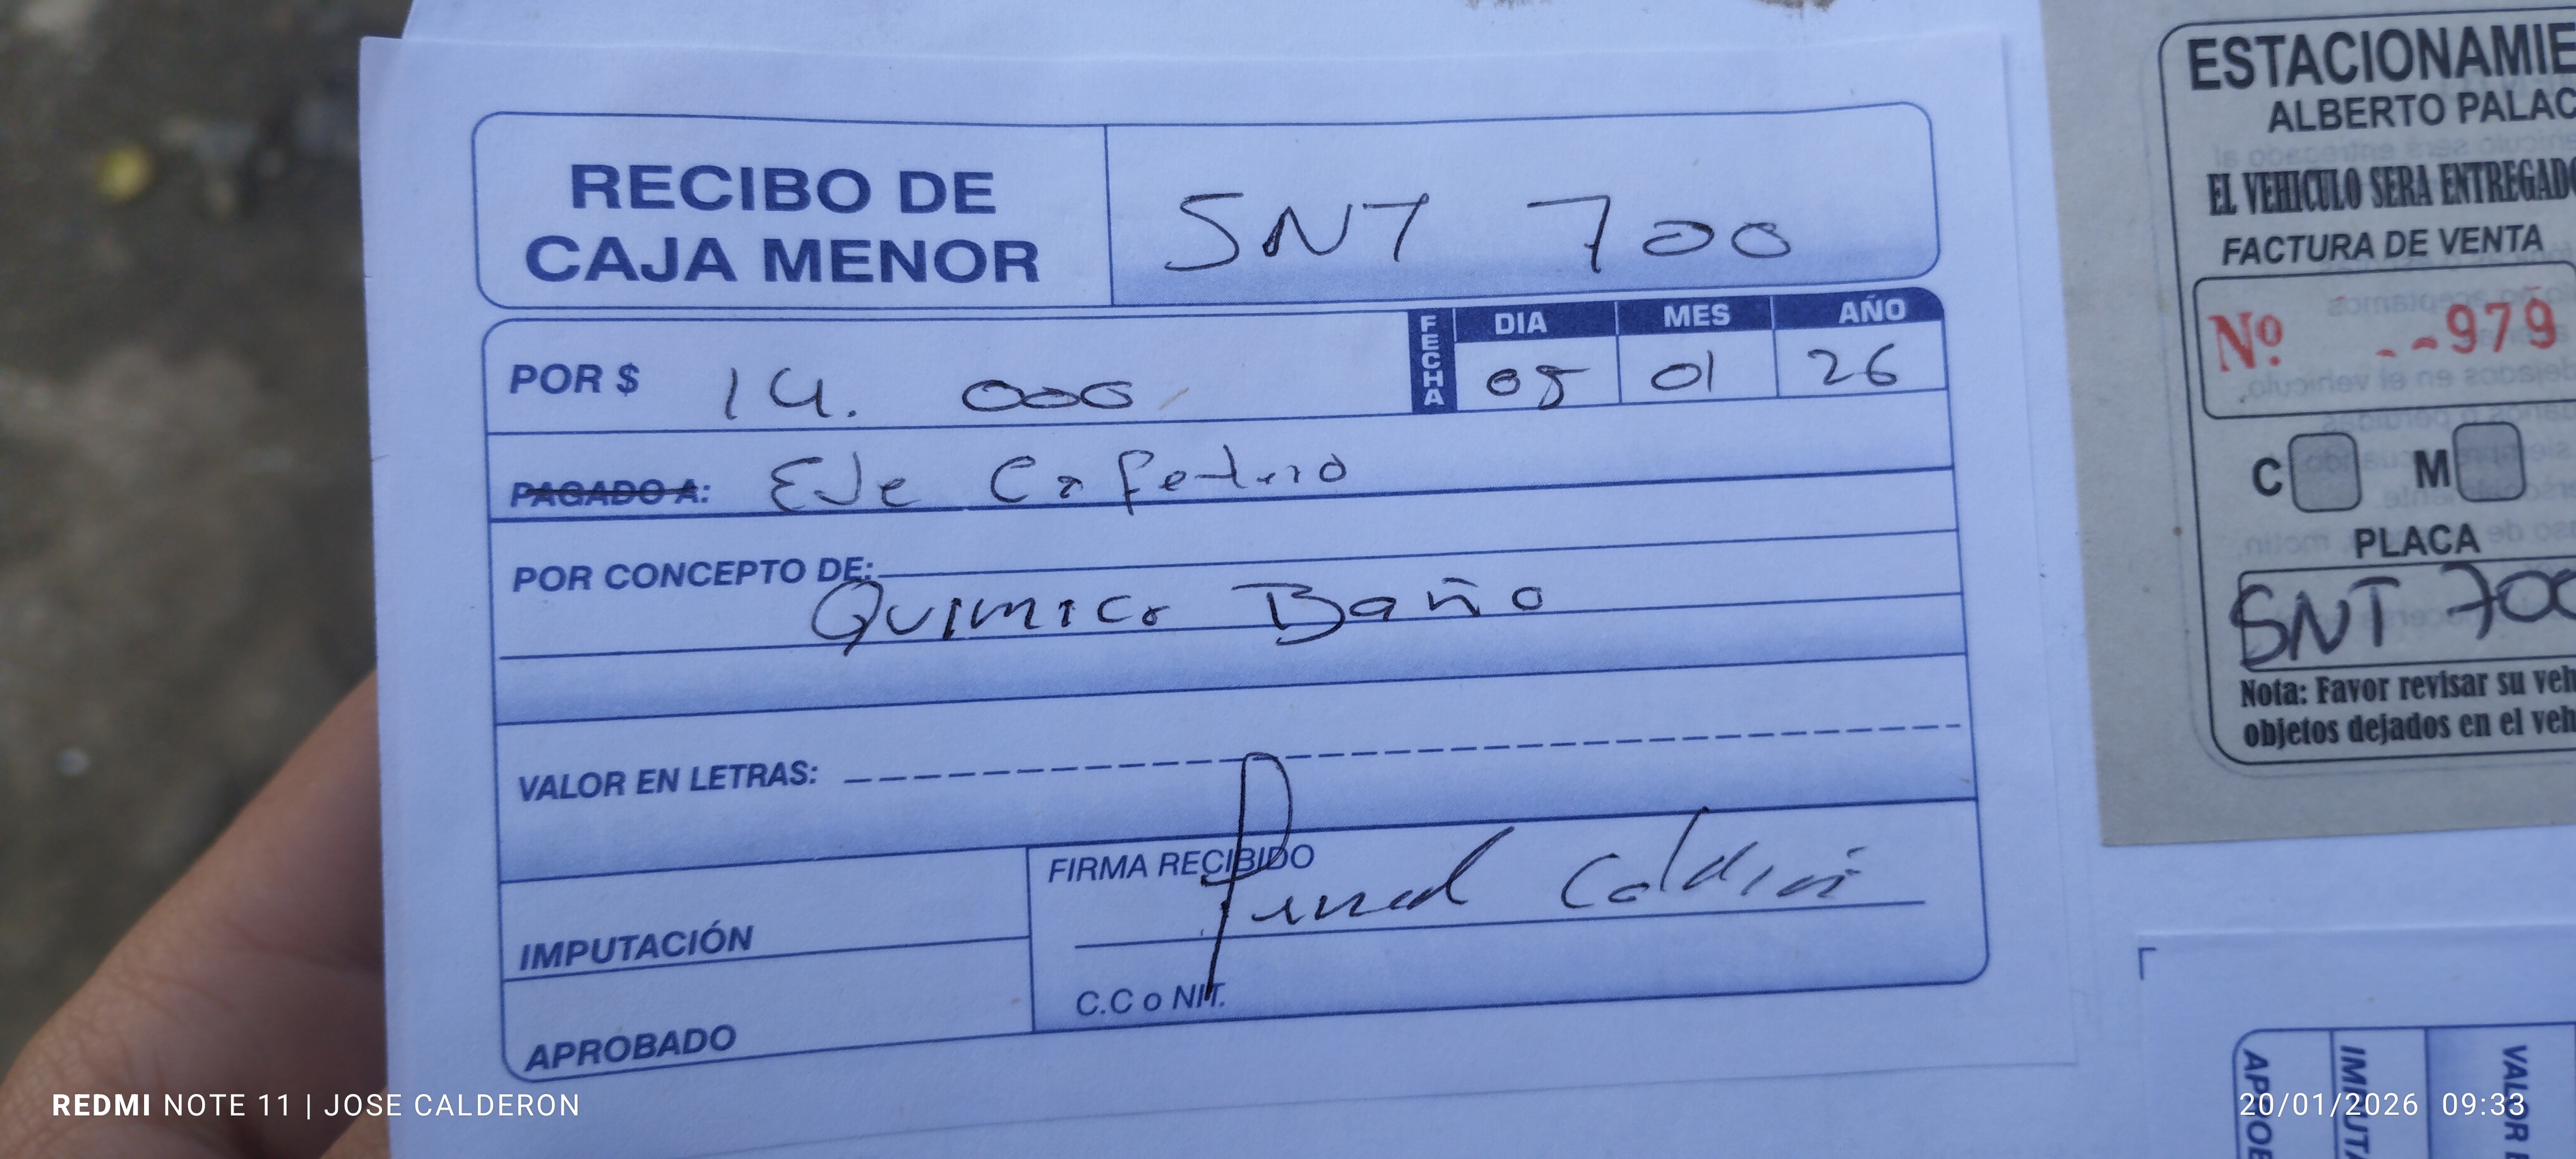 RECIBO DE
CAJA MENOR
SNT 700
POR $ 14.000
FECHA
DIA MES AÑO
05 01 26
PAGADO A: Eje Cafetero
POR CONCEPTO DE:
Quimico Baño
VALOR EN LETRAS:
IMPUTACIÓN
FIRMA RECIBIDO
Calderon
C.C o NIT.
APROBADO
ESTACIONAMIE
ALBERTO PALAC
EL VEHICULO SERA ENTREGADO
FACTURA DE VENTA
Nº 979
C M
PLACA
SNT 700
Nota: Favor revisar su veh
objetos dejados en el veh
APROB
IMPUTA
VALOR E
REDMI NOTE 11 | JOSE CALDERON
20/01/2026 09:33